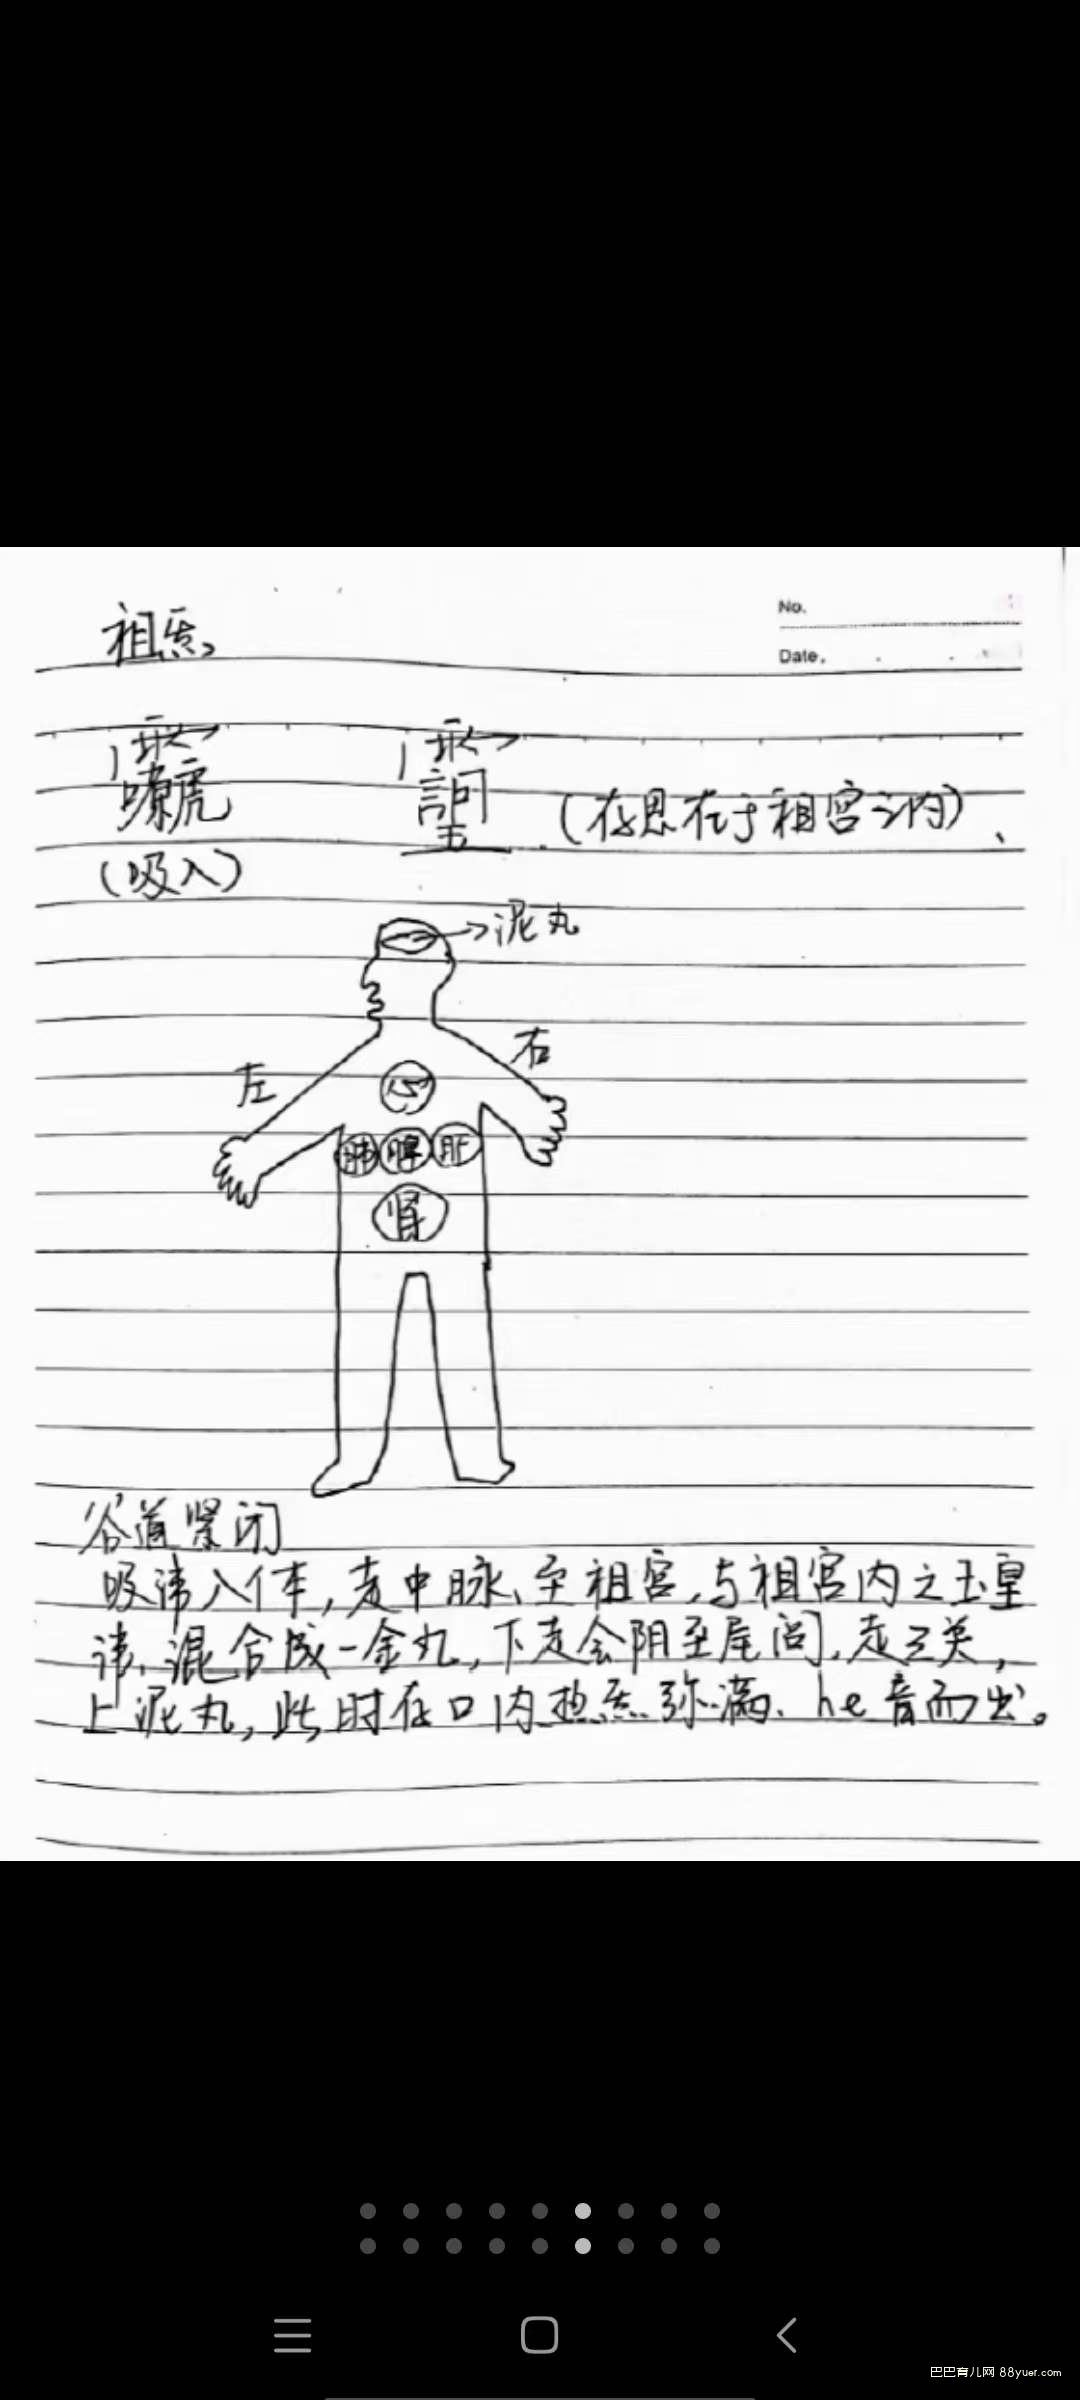 祖炁
No.
Date.
(吸入)
(存思在于祖宫之内)、
泥丸
左
右
心
肺 脾 肝
肾
谷道紧闭
吸讳入体，走中脉、至祖宫，与祖宫内之玉皇
讳，混合成一金丸，下走会阴至尾闾，走三关，
上泥丸，此时存口内热炁弥满、he音而出。
巴巴育儿网 88yuer.com